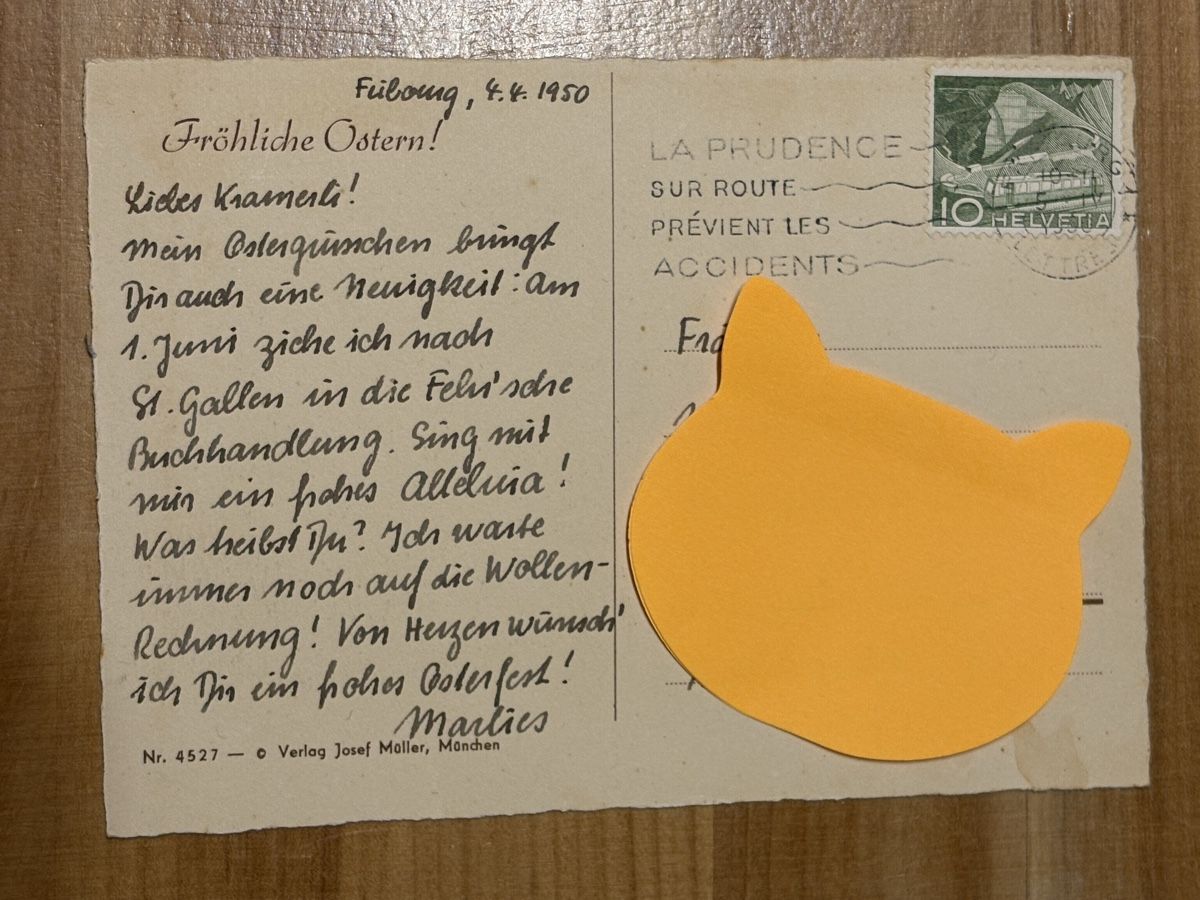 Fribourg, 4.4.1950
Fröhliche Ostern!
Liebes Kramerli!
Mein Ostergrüsschen bringt
Dir auch eine Neuigkeit: Am
1. Juni ziehe ich nach
St. Gallen in die Fehr'sche
Buchhandlung. Sing mit
mir ein frohes Alleluia!
Was treibst Du? Ich warte
immer noch auf die Wollen-
Rechnung! Von Herzen wünsch'
ich Dir ein frohes Osterfest!
Marlies
Nr. 4527 — © Verlag Josef Müller, München
LA PRUDENCE
SUR ROUTE
PRÉVIENT LES
ACCIDENTS
10 HELVETIA